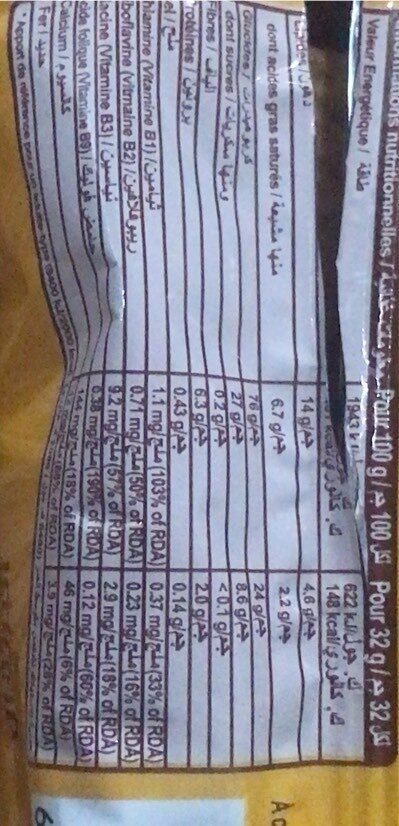 nutritionnelles / Pour 100 g / جم 100 لكل Pour 32 g / جم 32 لكل
Valeur Energétique / طاقة 1943 622 kJ/ك جول
148 kcal/ك كالوري
دهون 14 g/جم 4.6 g/جم
dont acides gras saturés / منها مشبعة 6.7 g/جم 2.2 g/جم
Glucides / كربوهيدرات 76 g/جم 24 g/جم
dont sucres / ومنها سكريات 27 g/جم 8.6 g/جم
Fibres / ألياف 0.2 g/جم <0.1 g/جم
Protéines / بروتين 6.3 g/جم 2.0 g/جم
ملح 0.43 g/جم 0.14 g/جم
(Vitamine B1) / ثيامين 1.1 mg/ملج (103% of RDA) 0.37 mg/ملج (33% of RDA)
(Vitmaine B2) / ريبوفلافين 0.71 mg/ملج (50% of RDA) 0.23 mg/ملج (16% of RDA)
(Vitamine B3) / نياسين 9.2 mg/ملج (57% of RDA) 2.9 mg/ملج (18% of RDA)
folique (Vitamine B9) / حمض فوليك 0.38 mg/ملج (190% of RDA) 0.12 mg/ملج (60% of RDA)
Calcium / كالسيوم mg/ملج (18% of RDA) 46 mg/ملج (6% of RDA)
Fer / حديد 3.9 mg/ملج (28% of RDA)
de référence pour un adulte-type (8400 kJ/2000
À c
6